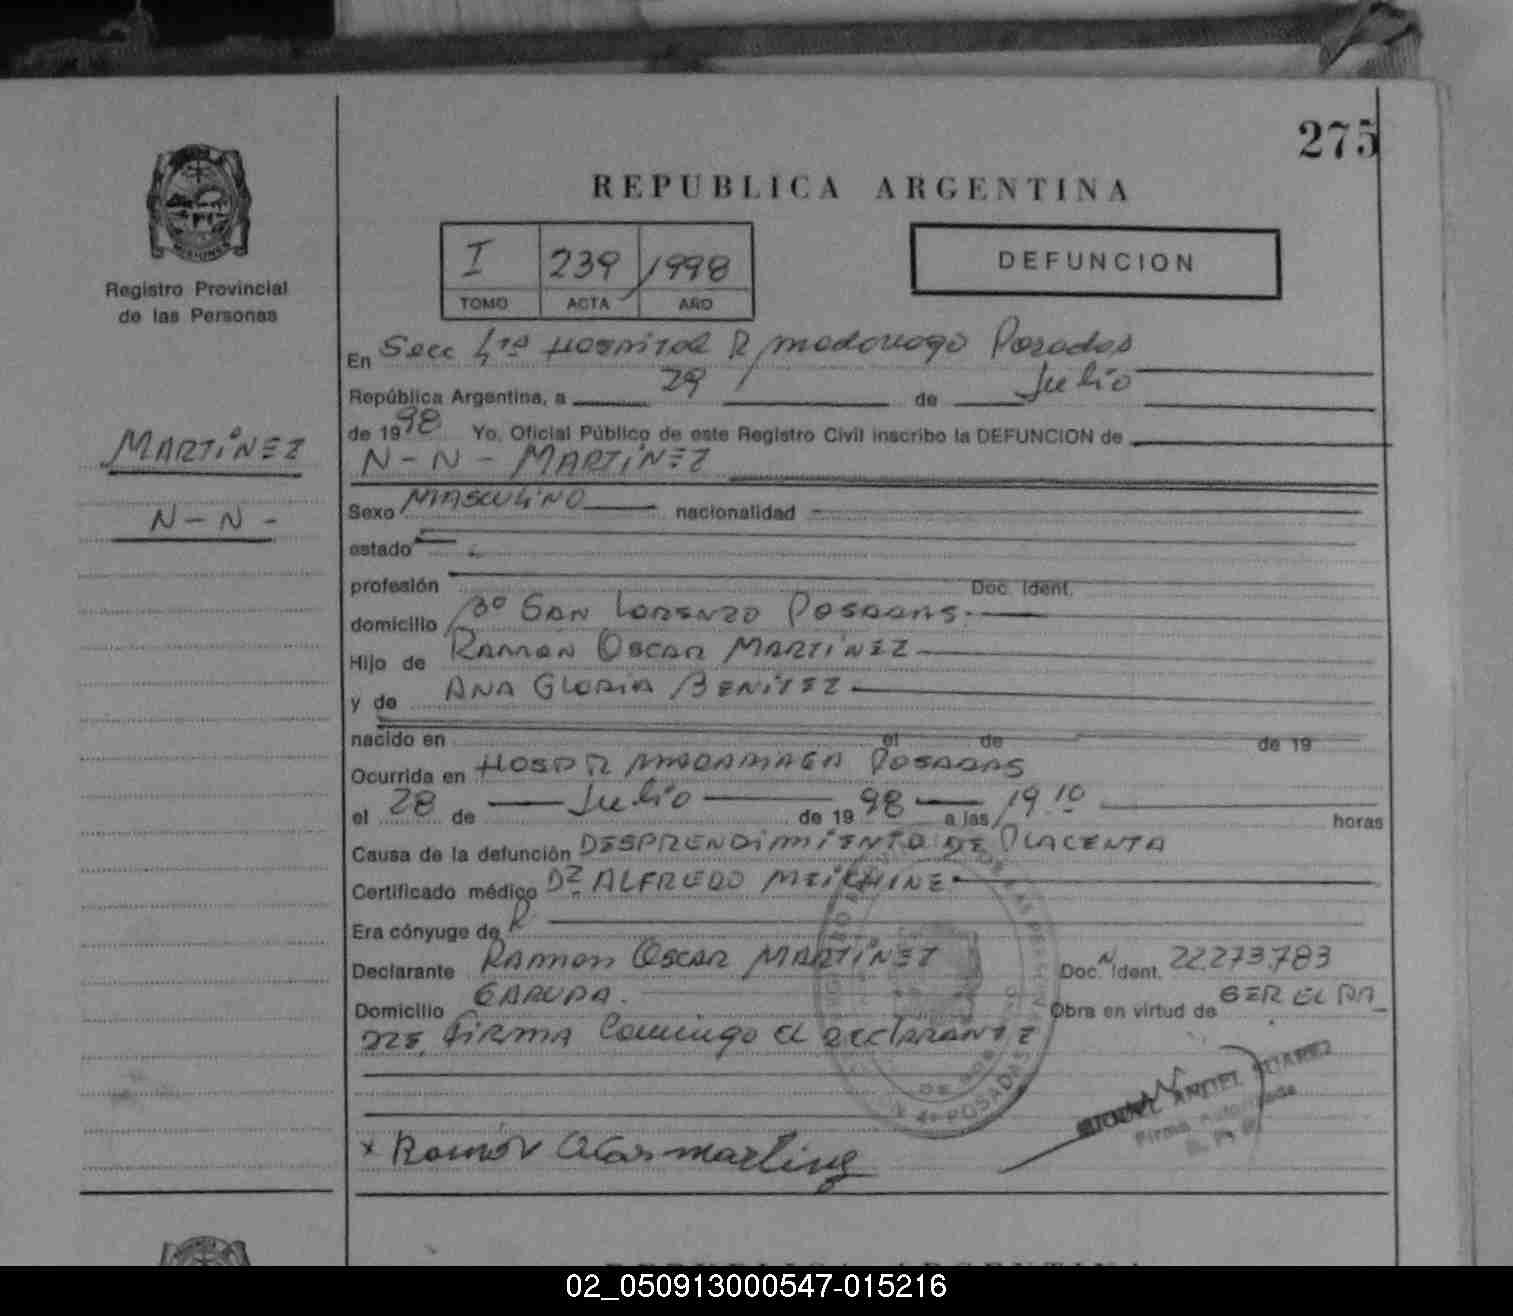 275
REPUBLICA ARGENTINA
I 239 1998
TOMO ACTA AÑO
DEFUNCION
Registro Provincial
de las Personas
MARTÍNEZ
N-N-
En Secc 4ta Hospital R Madariaga Posadas
República Argentina, a 29 de Julio
de 1998 Yo, Oficial Público de este Registro Civil inscribo la DEFUNCION de
N-N-MARTÍNEZ
Sexo MASCULINO nacionalidad
estado
profesión Doc. Ident.
domicilio Bº SAN LORENZO POSADAS.
Hijo de RAMON OSCAR MARTÍNEZ
y de ANA GLORIA BENÍTEZ
nacido en el de de 19
Ocurrida en HOSP R MADARIAGA POSADAS
el 28 de Julio de 1998 a las 19 10 horas
Causa de la defunción DESPRENDIMIENTO DE PLACENTA
Certificado médico Dr ALFREDO
Era cónyuge de
Declarante RAMON OSCAR MARTÍNEZ Doc. Ident. 22.273.783
Domicilio GARUPA. Obra en virtud de SER EL PA_
DRE, FIRMA Conmigo El DECLARANTE
ANGEL SUAREZ
Firma Autorizada
R. P. P.
POSADAS
x Ramón Oscar martinez
REPUBLICA ARGENTINA
02_050913000547-015216